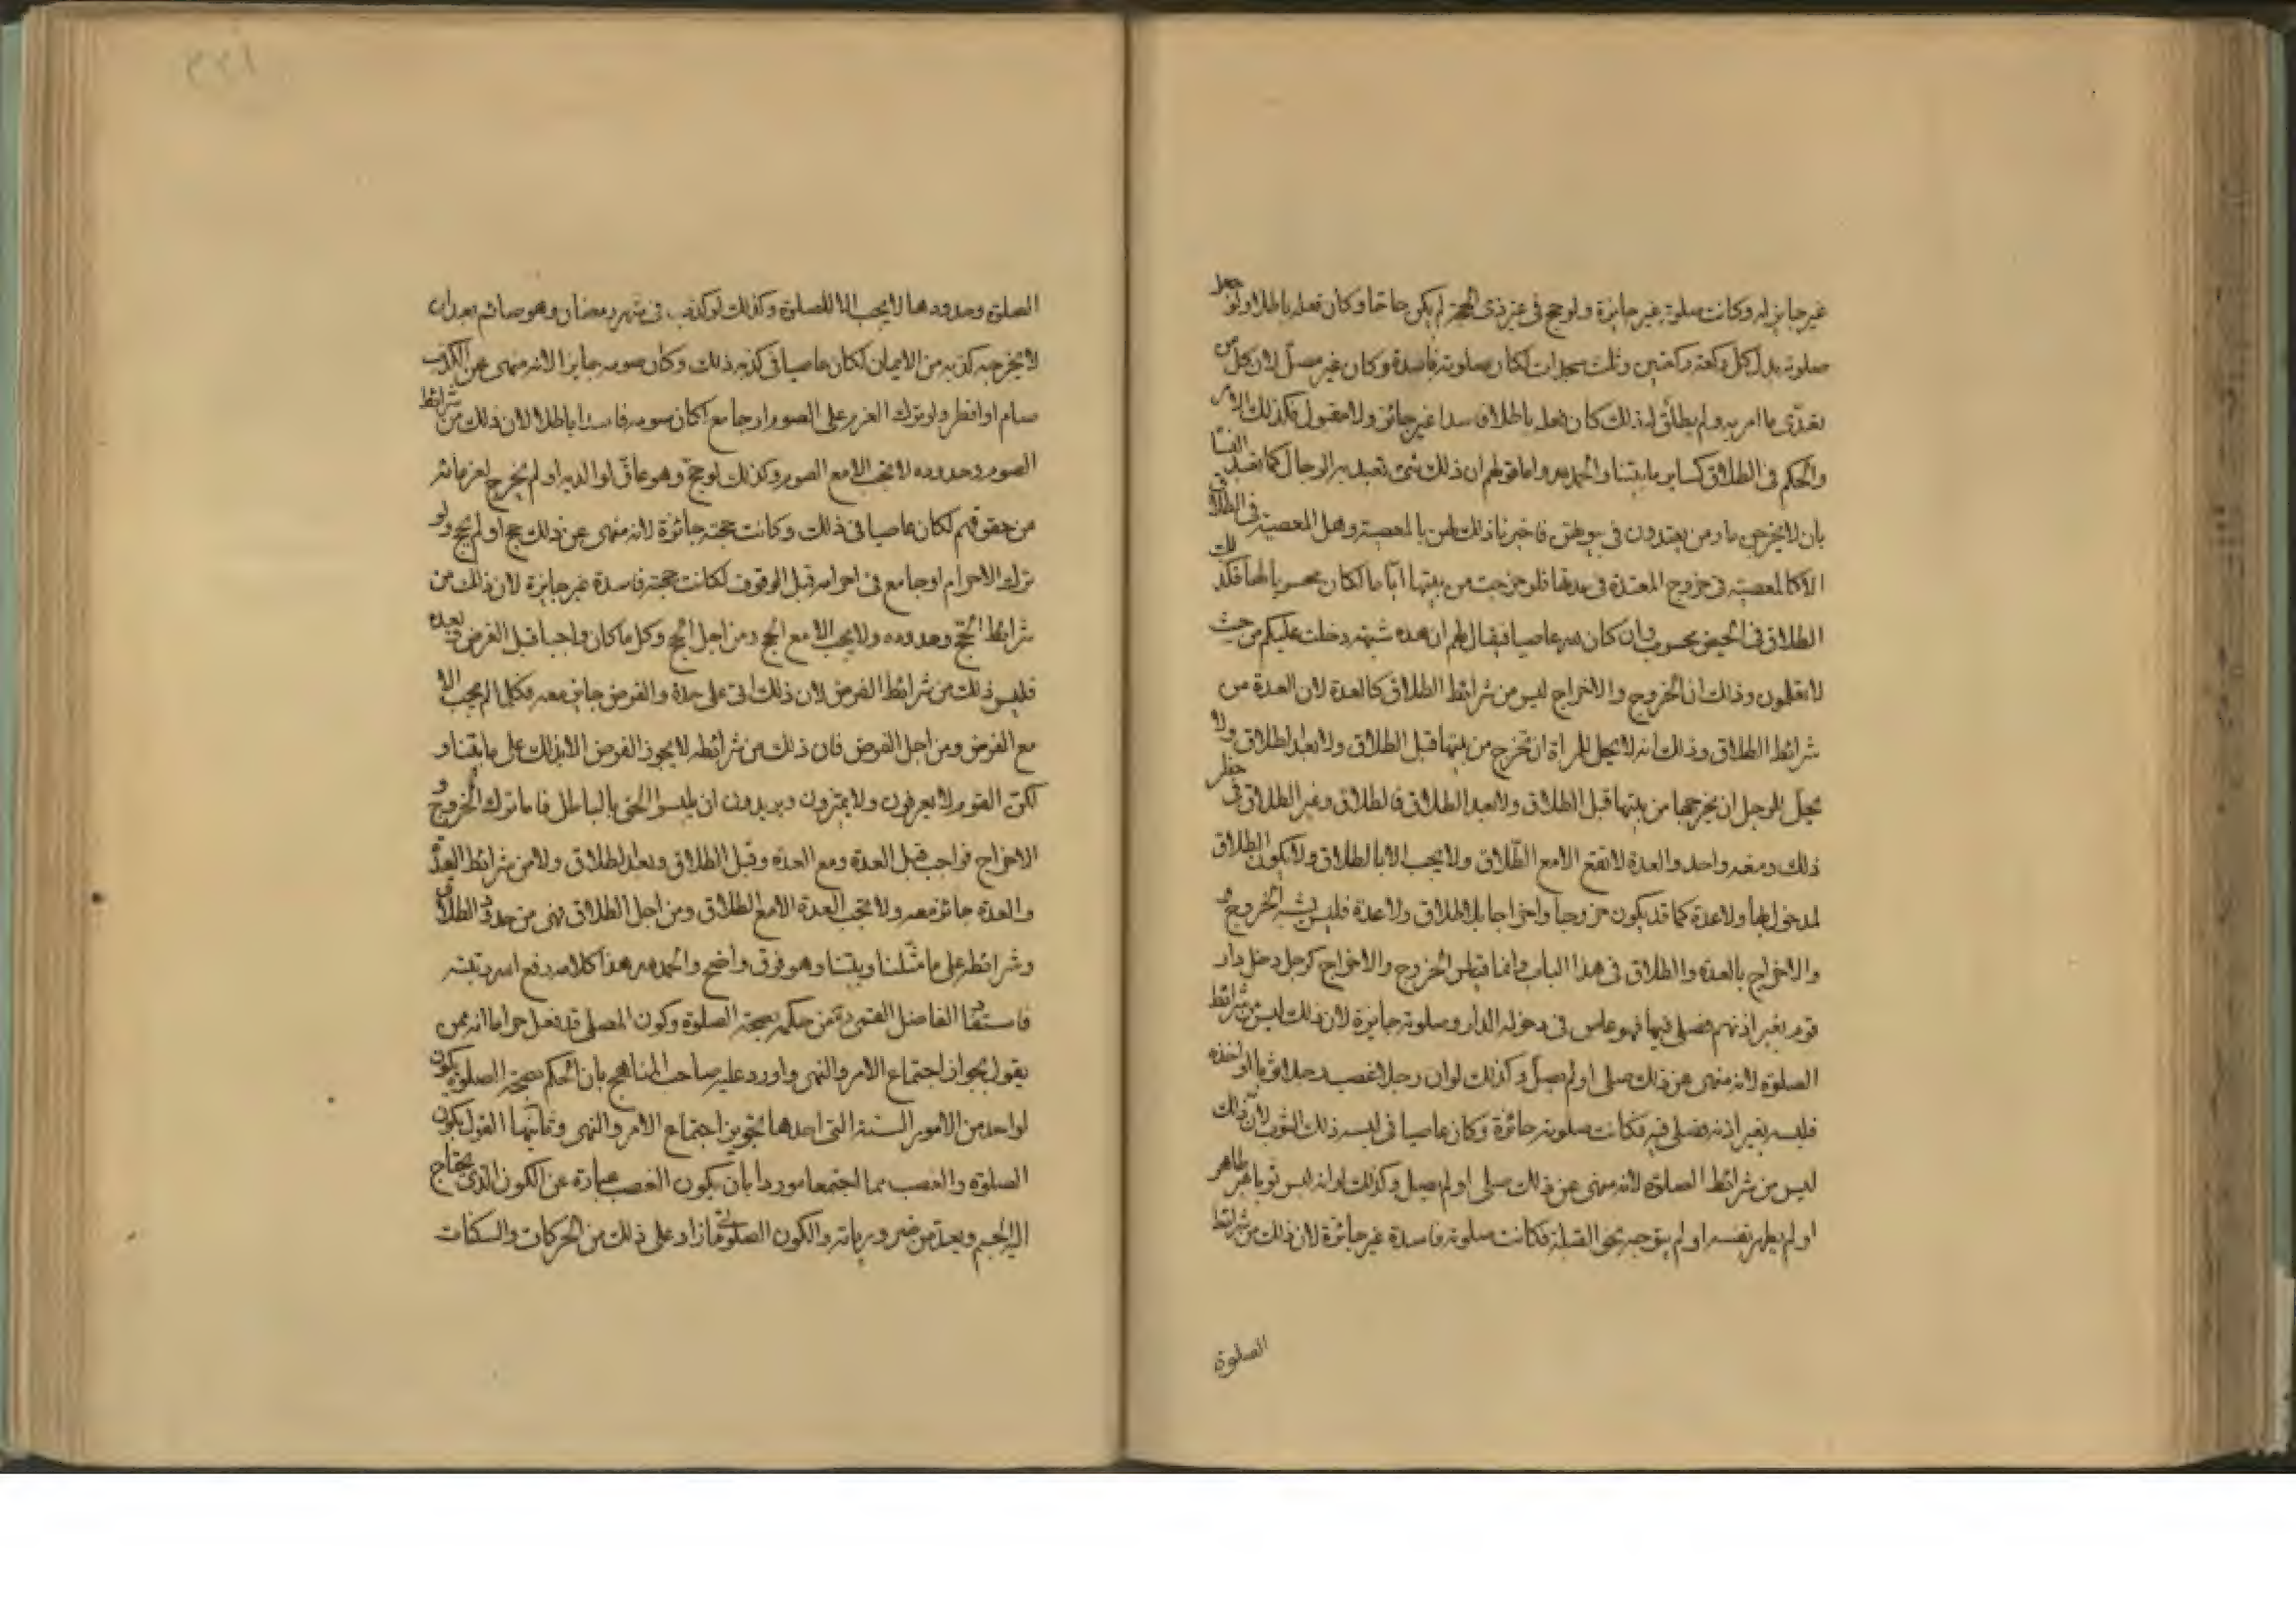 غير جايز له وكانت صلوته غير جايزة ولو حج فى غير ذى الحجة لم يكن حاجا وكان فعله باطلا ولو جعل
صلوته بدل كل ركعة ركعتين وثلث سجدات لكان صلوته فاسدة وكان غير مصلّ لان كل من
تعدّى ما امر به ولم يطلّق لذلك كان فعله باطلا فاسدا غير جائز ولا مقبول فكذلك الامر
والحكم فى الطلاق كساير ما بيّنا والحمد لله واما قولهم ان ذلك شئ تعبد به الرجال كما تعبد النسا
بان لا يخرجن ما دمن يعتددن فى بيوتهن فاخبرنا ذلك لهن بالمعصية وهل المعصية فى الطلاق
الا كالمعصية فى خروج المعتدة فى عدتها فلو خرجت من بيتها ايّاما لكان محسوبا لها فكذلك
الطلاق فى الحيض محسوب وان كان لله عاصيا فيقال لهم ان هذه شبهة دخلت عليكم من حيث
لا تعلمون وذلك ان الخروج والاخراج ليس من شرائط الطلاق كالعدة لان العدة من
شرائط الطلاق وذلك انه لا يحل للمراة ان تخرج من بيتها قبل الطلاق ولا بعد الطلاق ولا
يحلّ للرجل ان يخرجها من بيتها قبل الطلاق ولا بعد الطلاق فالطلاق وغير الطلاق فى حظر
ذلك ومنعه واحد والعدة لا تقع الا مع الطّلاق ولا يجب الا بالطلاق ولا يكون الطلاق
لمدخول بها ولا عدة كما قد يكون خروجا واخراجا بلا طلاق ولا عدة فليس يشبه الخروج
والاخراج بالعدة والطلاق فى هذا الباب وانما قياس الخروج والاخراج كرجل دخل دار
قوم بغير اذنهم فصلى فيها فهو عاص فى دخوله الدار وصلوته جايزة لان ذلك ليس من شرائط
الصلوة لانه منهى عن ذلك صلى او لم يصلّ وكذلك لو ان رجلا غصب رجلا ثوبا او اخذه
فلبسه بغير اذنه فصلى فيه فكانت صلوته جائزة وكان عاصيا فى لبسه ذلك الثوب لان ذلك
ليس من شرائط الصلوة لانه منهى عن ذلك صلى او لم يصل وكذلك لو انه لبس ثوبا غير طاهر
او لم يطهر نفسه او لم يتوجه نحو القبلة فكانت صلوته فاسدة غير جائزة لان ذلك من شرائط
الصلوة
٢٢١
الصلوة وحدودها لا يجب الا للصلوة وكذلك لو كذب فى شهر رمضان وهو صائم بعد ان
لا يخرجه كذبه من الايمان لكان عاصيا فى كذبه ذلك وكان صومه جايزا لانه منهى عن الكذب
صام او افطر ولو ترك العزم على الصوم او جامع لكان صومه فاسدا باطلا لان ذلك من شرائط
الصوم وحدوده لا تجب الا مع الصوم وكذلك لو حجّ وهو عاقّ لوالديه او لم يخرج لغرمائه
من حقوقهم لكان عاصيا فى ذلك وكانت حجته جائزة لانه منهى عن ذلك حج او لم يحج ولو
ترك الاحرام او جامع فى احرامه قبل الوقوف لكانت حجته فاسدة غير جايزة لان ذلك من
شرائط الحجّ وحدوده ولا يجب الا مع الحج ومن اجل الحج وكل ما كان واجبا قبل الفرض وبعده
فليس ذلك من شرائط الفرض لان ذلك اتى على حدة والفرض جايز معه فكل ما لم يجب الا
مع الفرض ومن اجل الفرض فان ذلك من شرائطه لا يجوز الفرض الا بذلك على ما بيّنا و
لكنّ القوم لا يعرفون ولا يميّزون ويريدون ان يلبسوا الحق بالباطل فاما ترك الخروج و
الاخراج فواجب قبل العدة ومع العدة وقبل الطلاق وبعد الطلاق ولا من شرائط العدّة
والعدة جائزة معه ولا تجب العدة الا مع الطلاق ومن اجل الطلاق فهى من حدود الطلاق
وشرائطه على ما مثّلنا وبيّنا وهو فرق واضح والحمد لله هذا كلامه رفع الله رتبته
فاستفاد الفاضل القمى ره من حكمه بصحة الصلوة وكون المصلى قد فعل حراما انه ممن
يقول بجواز اجتماع الامر والنهى واورد عليه صاحب المناهج بان الحكم بصحة الصلوة يكون
لواحد من الامور الستة التى احدها تجويز اجتماع الامر والنهى وثانيها القول بكون
الصلوة والغصب مما اجتمعا موردا بان يكون الغصب عبارة عن الكون الذى يحتاج
اليه الجسم ويعد من ضرورياته والكون الصلوتى ما زاد على ذلك من الحركات والسكنات